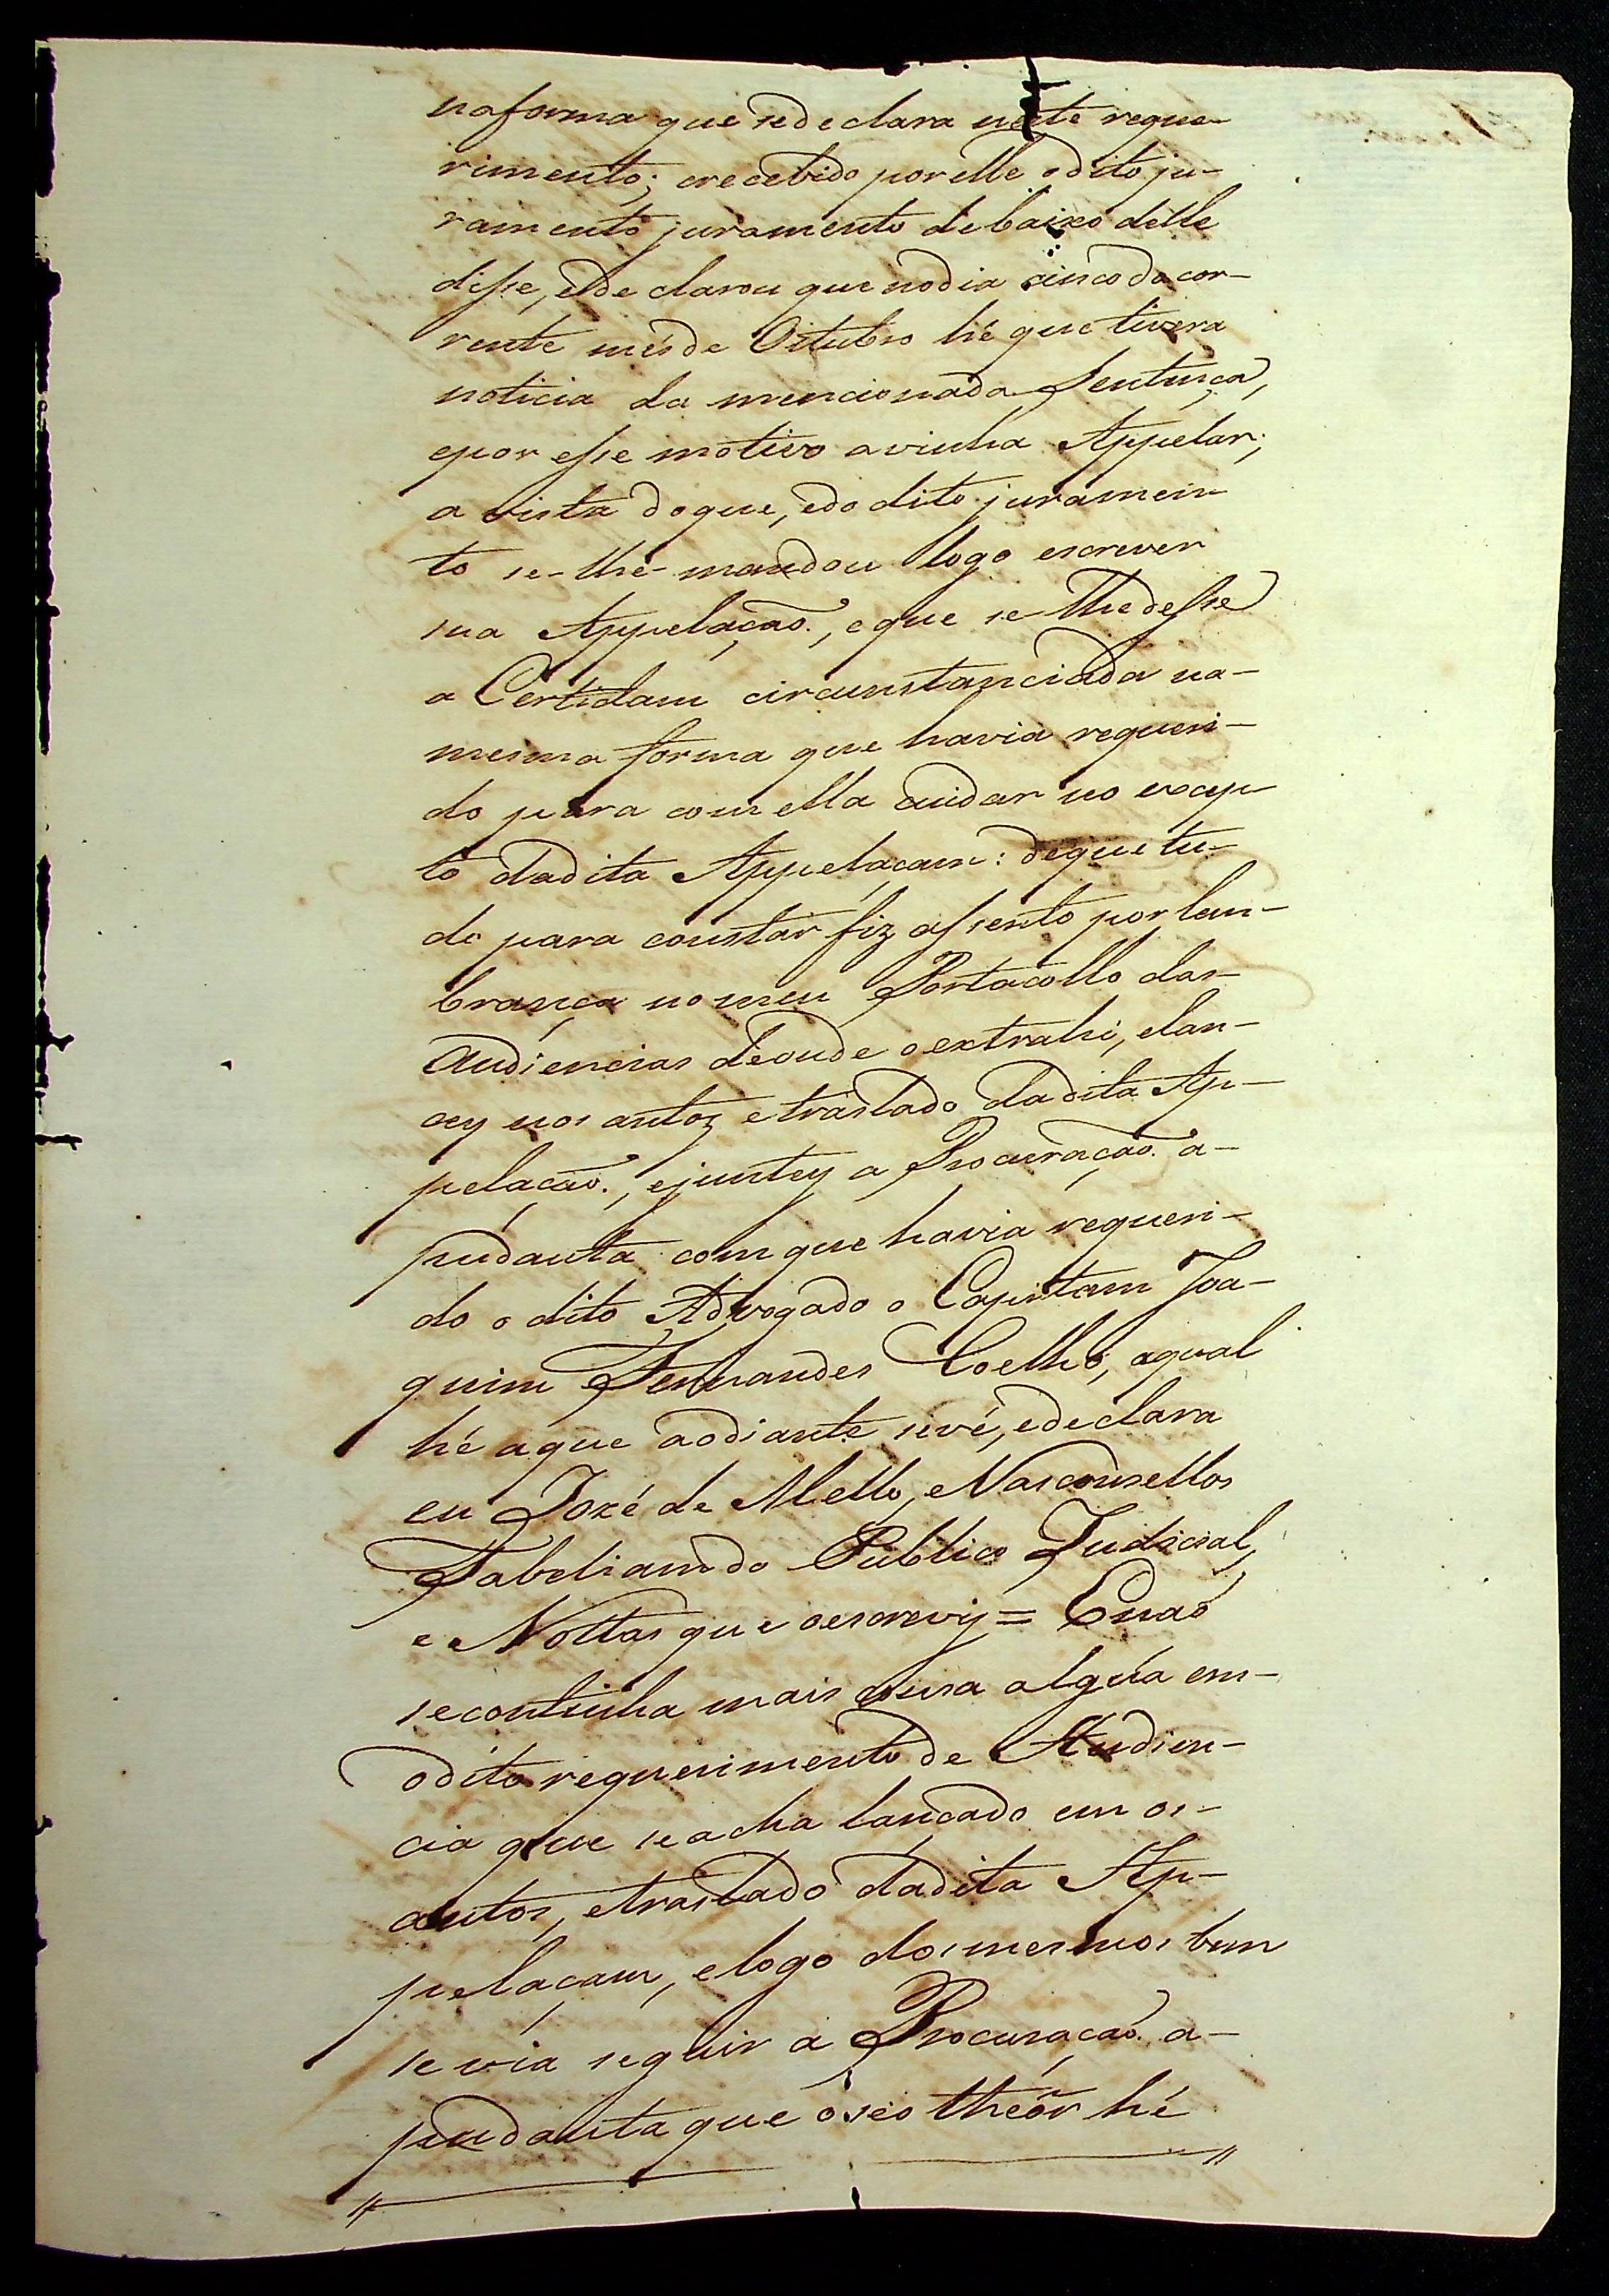 naforma que sedeclara neste reque-
rimento; erecebido porelle odito ju-
ramento juramento debaixo delle
disse, ede clarou que nodia sinco do cor-
rente més de Oitubro hé que tivera
noticia da mencionada Sentença,
epor esse motivo avinha Appelar;
a vista doque, edo dito juramen
to se-lhe-mandou logo escrever
sua Appelação., eque se lhe desse
a Certidam circunstanciada na-
mesma forma que havia requeri-
do para com ella cuidar no exep-
to dadita Appelaçam: deque tu-
do para constar fiz assento por lem-
brança no meu Portacollo das-
Audiencias deonde oextrahi, elan-
cey nos autos etraslado dadita Ap-
pelação., ejuntey a Procuração. a-
pudauta com que havia requeri-
do o dito Advogado o Capitam Joa-
quim Fernandes Coelho, aqual
hé aque aodiante sevé, edeclara
eu Jozé de Mello, eVasconsellos
Tabeliam do Publico Judicial,
e Nottas que oescrevy = Enaó
secontinha mais cousa algúa em-
odito requerimento de Audien-
cia que seacha lançado em os-
autos, etraslado dadita Ap-
pelaçam, elogo dos mesmos bem
sevia seguir a Procuração. a-
pudautaque oseo theõr hé